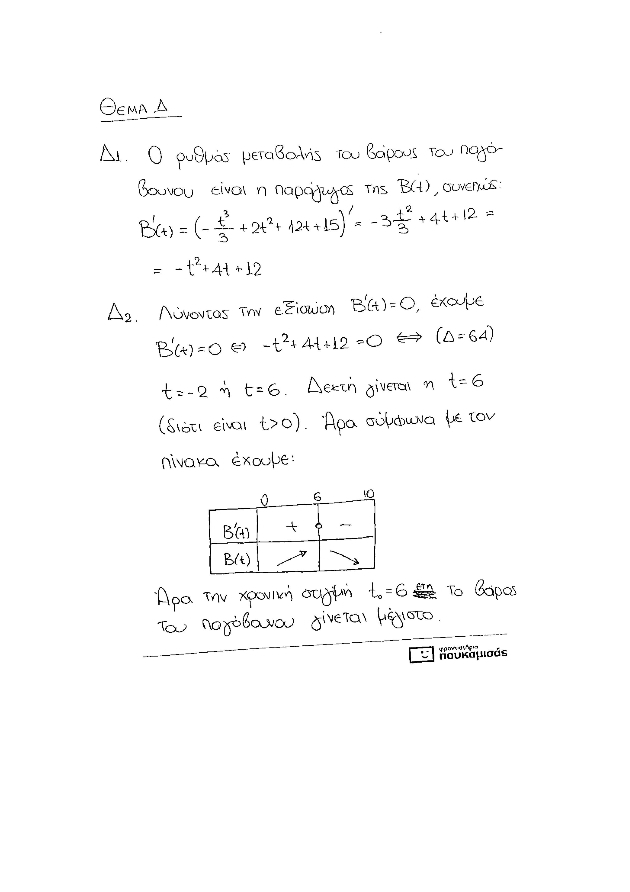 ΘΕΜΑ Δ
Δ1. Ο ρυθμός μεταβολής του βάρους του παγό-
βουνου είναι η παράγωγος της B(t), συνεπώς:
B'(t) = (-t³/3 + 2t² + 12t + 15)' = -3t²/3 + 4t + 12 =
= -t² + 4t + 12
Δ2. Λύνοντας την εξίσωση B'(t)=0, έχουμε
B'(t)=0 ⇔ -t²+4t+12=0 ⇔ (Δ=64)
t=-2 ή t=6. Δεκτή γίνεται η t=6
(διότι είναι t>0). Άρα σύμφωνα με τον
πίνακα έχουμε:
0 6 10
B'(t) + -
B(t)
Άρα την χρονική στιγμή t₀=6 έτη το βάρος
του παγόβουνου γίνεται μέγιστο.
φροντιστήριο
πουκαμισάς